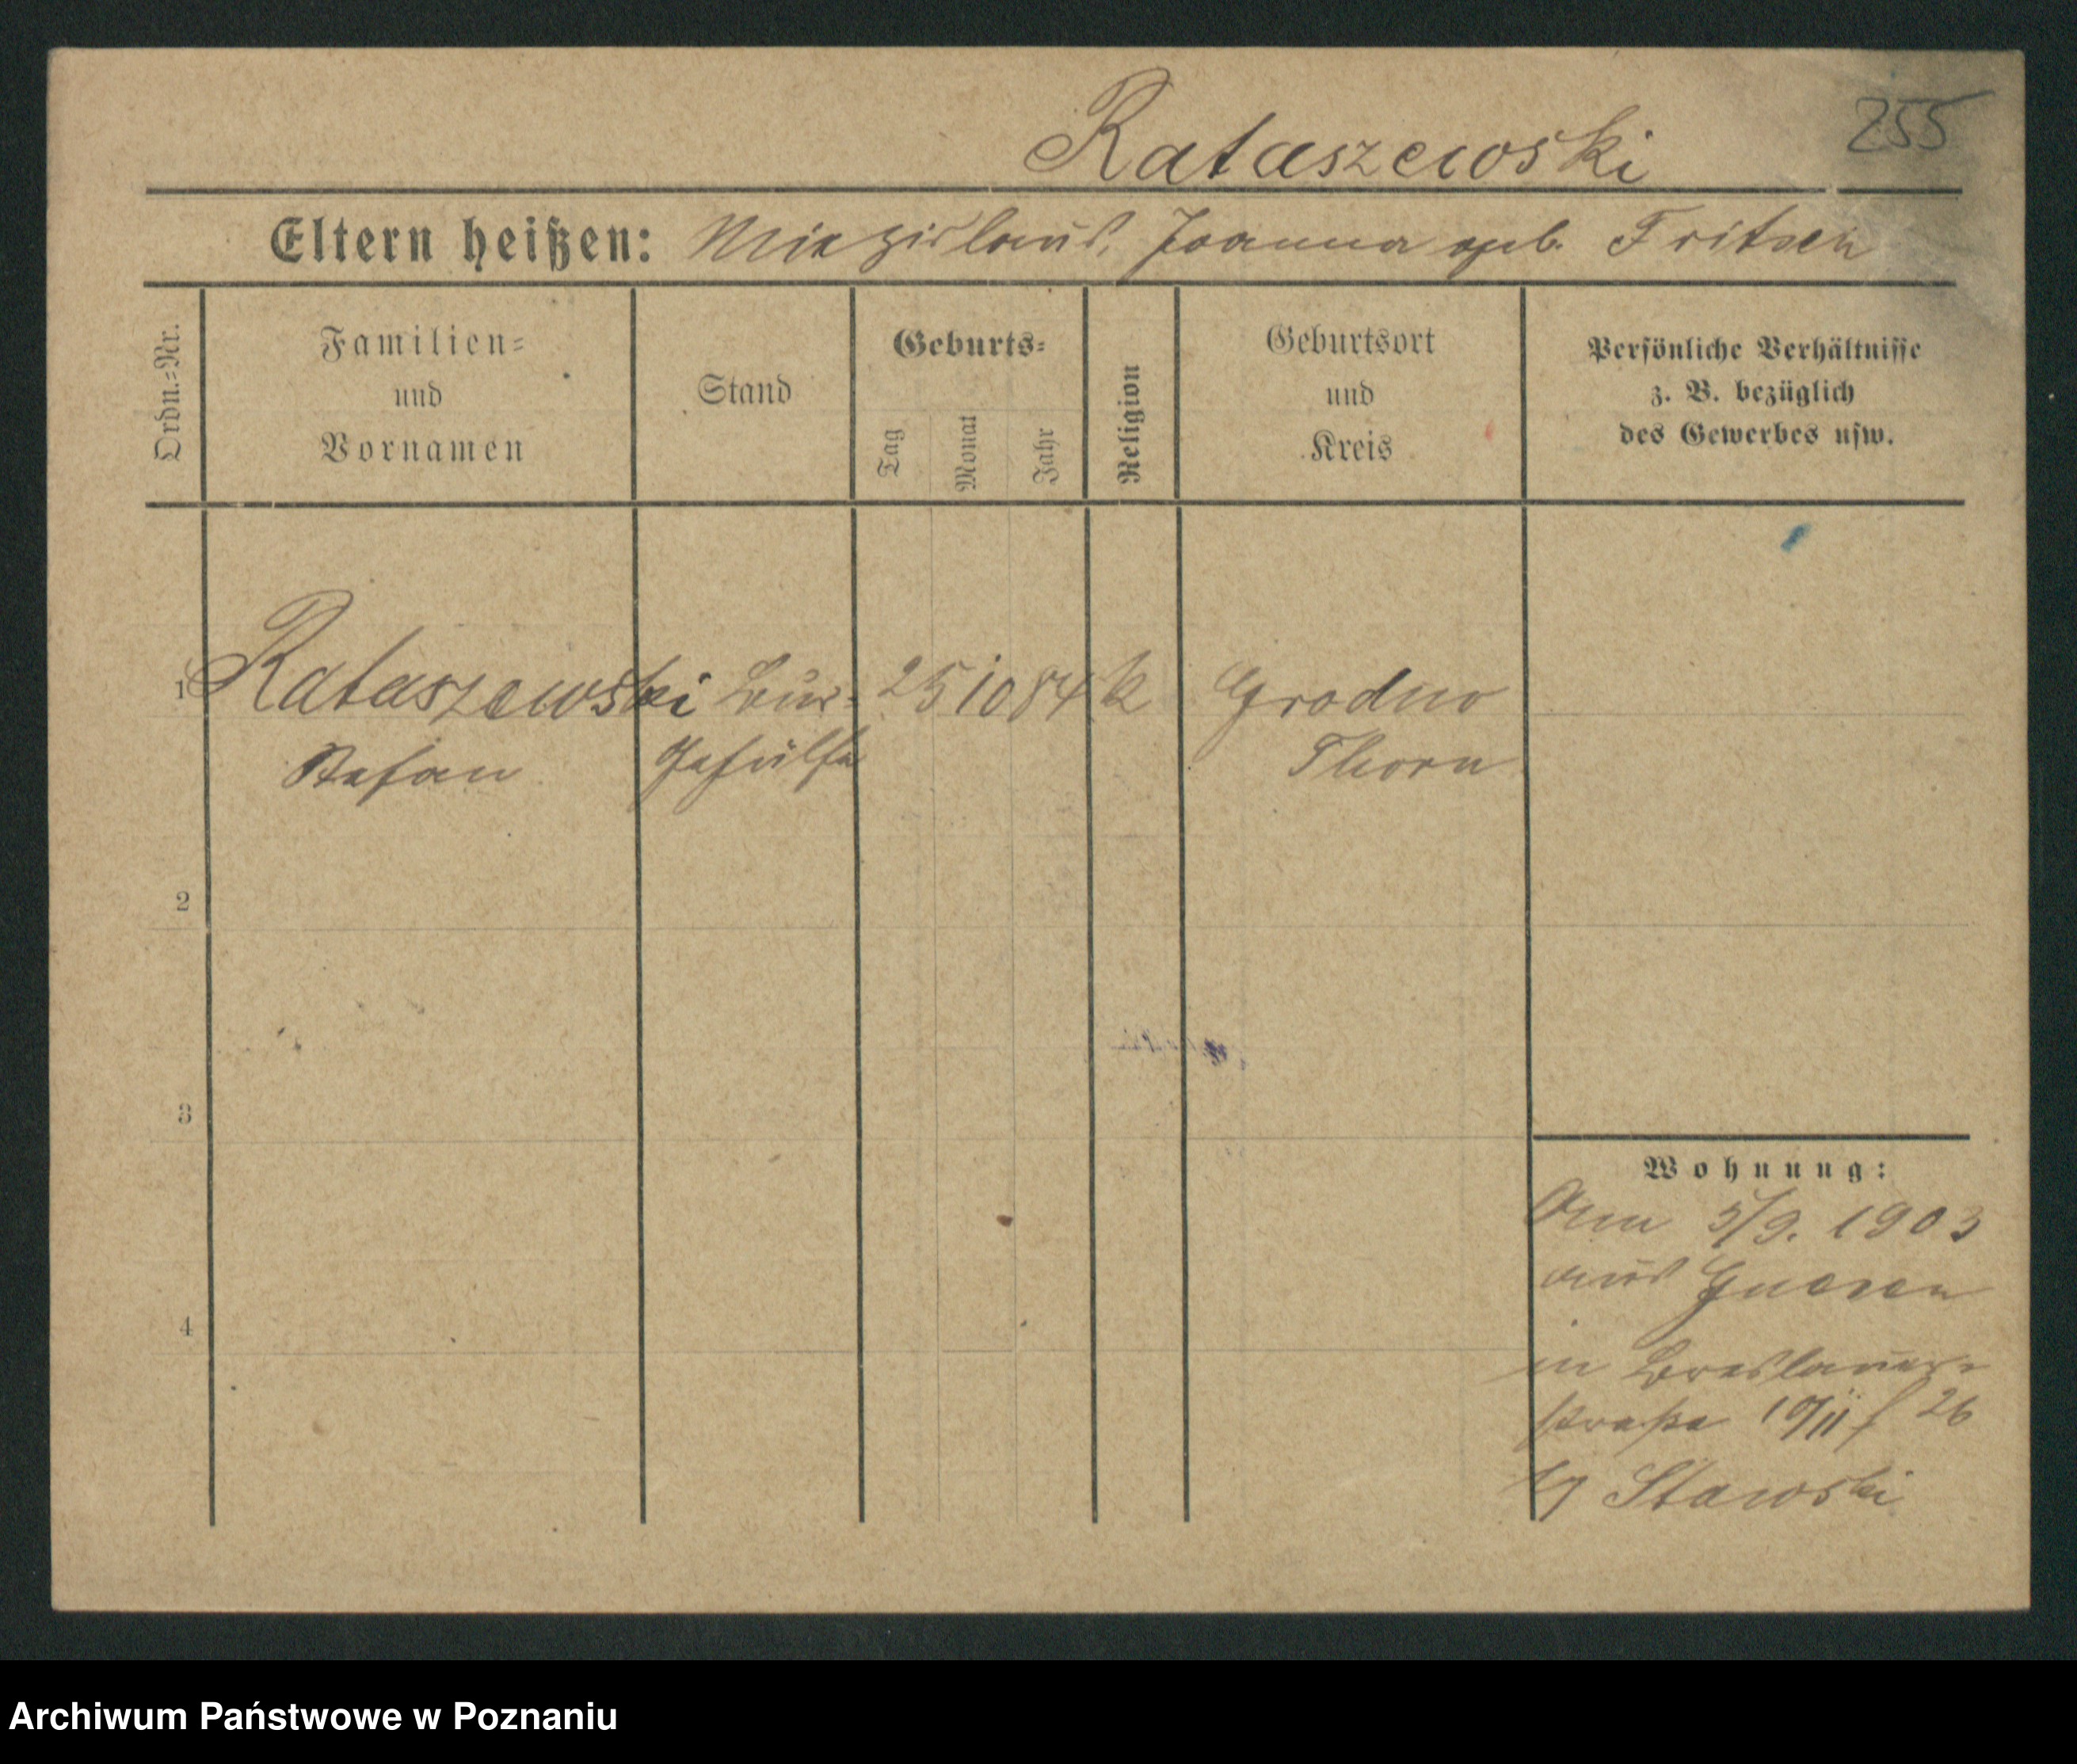 255
Rataszewski
Eltern heißen: Miezislaus, Joanna geb. Fritsch
Ordn.-Nr.
Familien-
und
Vornamen
Stand
Geburts-
Tag
Monat
Jahr
Religion
Geburtsort
und
Kreis
Persönliche Verhältnisse
z. B. bezüglich
des Gewerbes usw.
1 Rataszewski Bur- 25 10 84 k Grodno
Stefan Gehülfe Thorn
2
3
4
Wohnung:
5/9. 1903
aus Gnesen
in Breslauer-
straße 26
Stawski
Archiwum Państwowe w Poznaniu